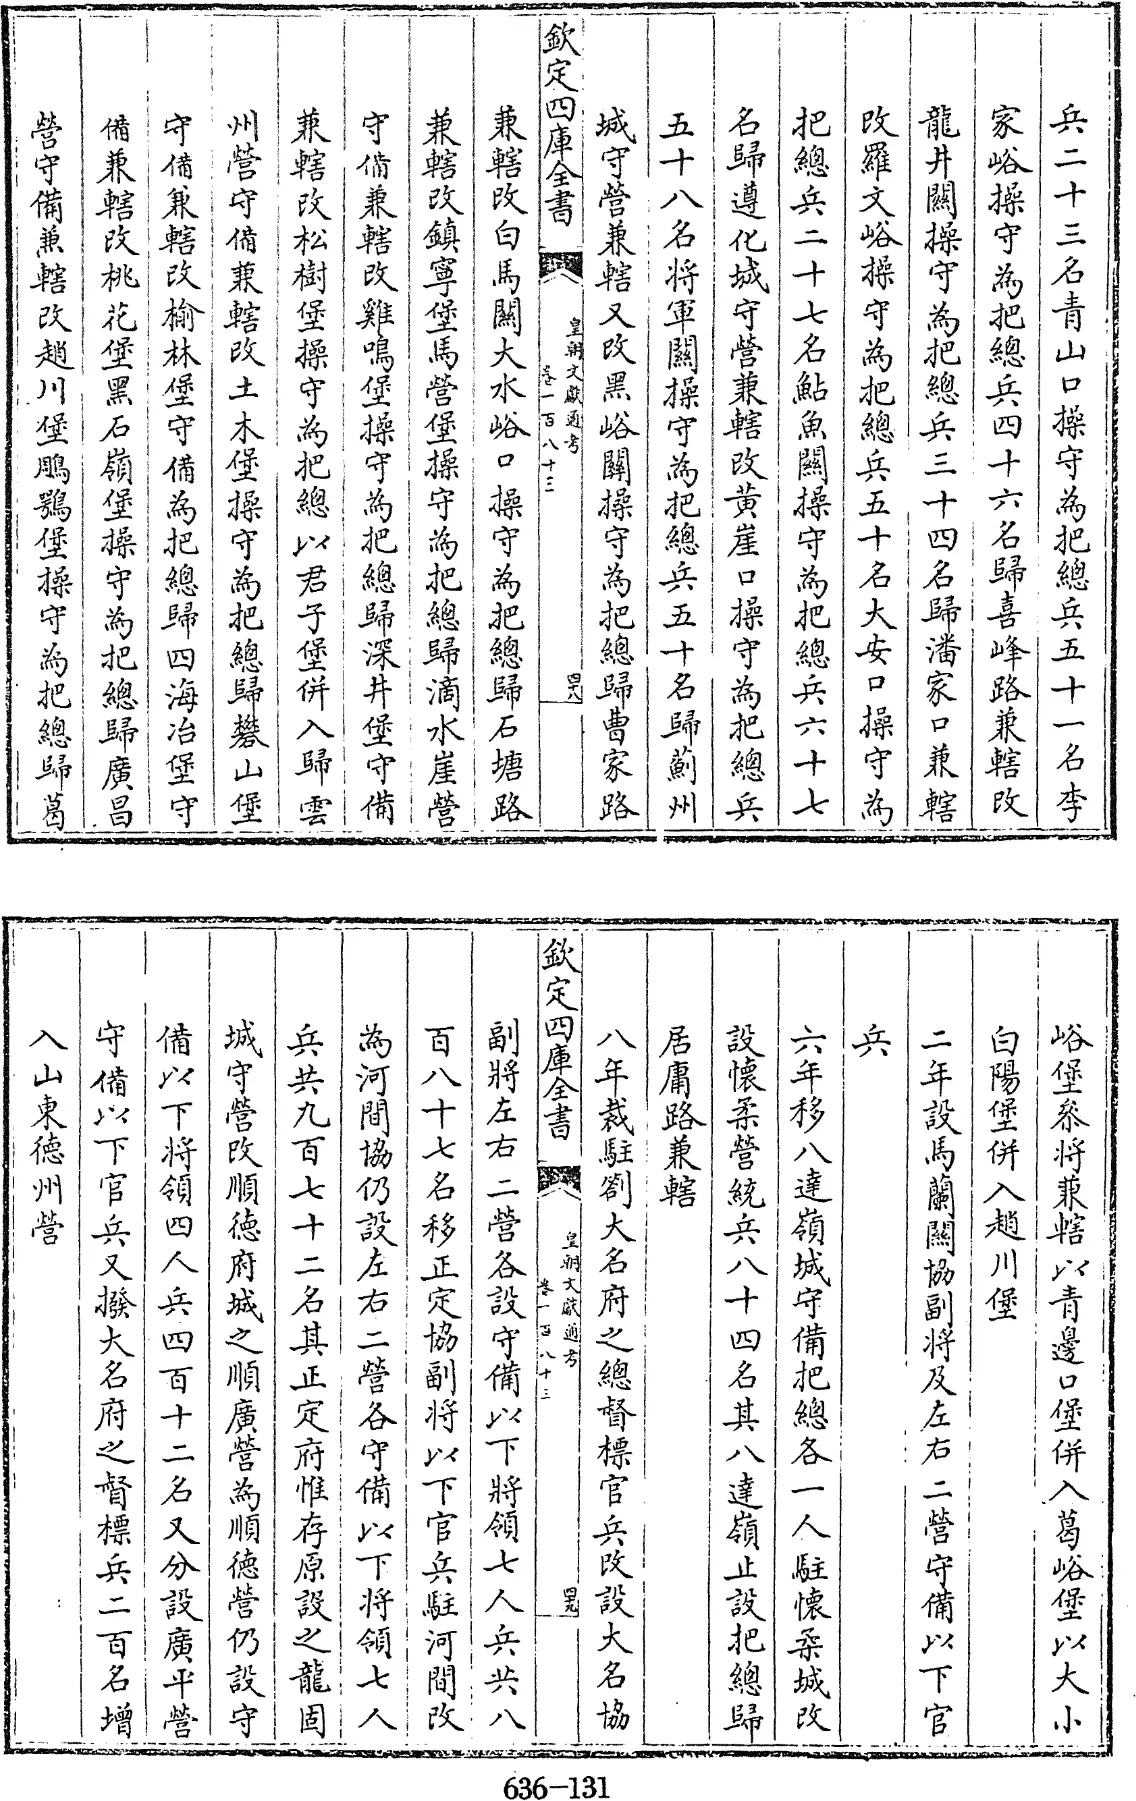 兵二十三名青山口操守為把總兵五十一名李
家峪操守為把總兵四十六名歸喜峰路兼轄改
龍井關操守為把總兵三十四名歸潘家口兼轄
改羅文峪操守為把總兵五十名大安口操守為
把總兵二十七名鮎魚關操守為把總兵六十七
名歸遵化城守營兼轄改黃崖口操守為把總兵
五十八名將軍關操守為把總兵五十名歸薊州
城守營兼轄又改黑峪關操守為把總歸曹家路
欽定四庫全書
皇朝文獻通考
卷一百八十三
四十八
兼轄改白馬關大水峪口操守為把總歸石塘路
兼轄改鎮寧堡馬營堡操守為把總歸滴水崖營
守備兼轄改雞鳴堡操守為把總歸深井堡守備
兼轄改松樹堡操守為把總以君子堡併入歸雲
州營守備兼轄改土木堡操守為把總歸礬山堡
守備兼轄改榆林堡守備為把總歸四海冶堡守
備兼轄改桃花堡黑石嶺堡操守為把總歸廣昌
營守備兼轄改趙川堡鵰鶚堡操守為把總歸葛
峪堡叅將兼轄以青邊口堡併入葛峪堡以大小
白陽堡併入趙川堡
二年設馬蘭關協副將及左右二營守備以下官
兵
六年移八達嶺城守備把總各一人駐懷柔城改
設懷柔營統兵八十四名其八達嶺止設把總歸
居庸路兼轄
八年裁駐劄大名府之總督標官兵改設大名協
欽定四庫全書
皇朝文獻通考
卷一百八十三
四十九
副將左右二營各設守備以下將領七人兵共八
百八十七名移正定協副將以下官兵駐河間改
為河間協仍設左右二營各守備以下將領七人
兵共九百七十二名其正定府惟存原設之龍固
城守營改順德府城之順廣營為順德營仍設守
備以下將領四人兵四百十二名又分設廣平營
守備以下官兵又撥大名府之督標兵二百名增
入山東德州營
636-131